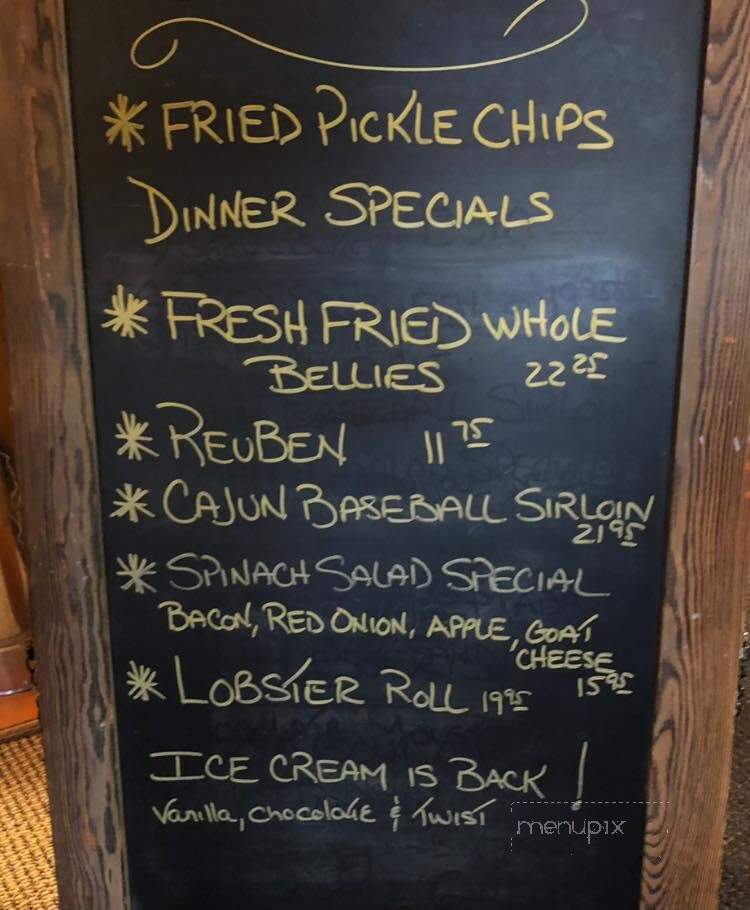 * FRIED PICKLE CHIPS
DINNER SPECIALS
* FRESH FRIED WHOLE
BELLIES 22 25
* REUBEN 11 75
* CAJUN BASEBALL SIRLOIN
21 95
* SPINACH SALAD SPECIAL
BACON, RED ONION, APPLE, GOAT
CHEESE
15 95
* LOBSTER ROLL 19 95
ICE CREAM IS BACK!
Vanilla, chocolate & TWIST
menupix